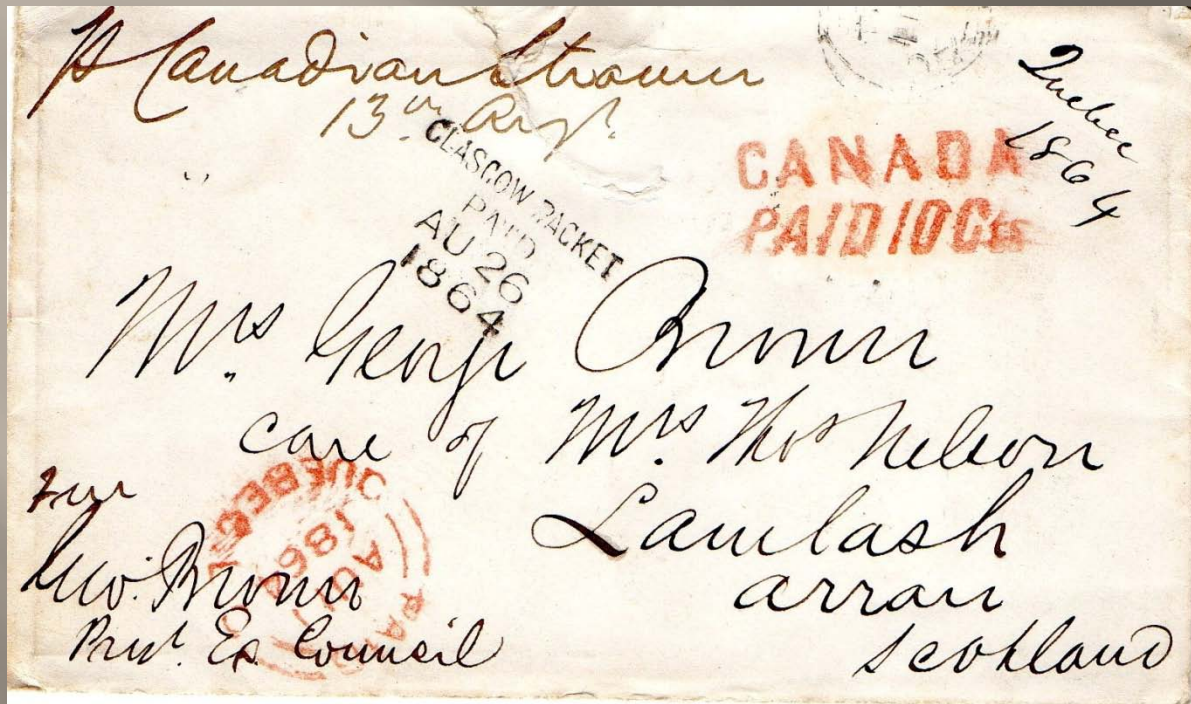 p Canadian Steamer
13th Augt.
Quebec
1864
GLASGOW PACKET
PAID
AU 26
1864
CANADA
PAID 10 Cts
Mrs. George Brown
care of Mrs. Thos Nelson
Lamlash
Arran
Scotland
QUEBEC
186
AU
PAID
Free
Geo. Brown
Prest. Ex Council